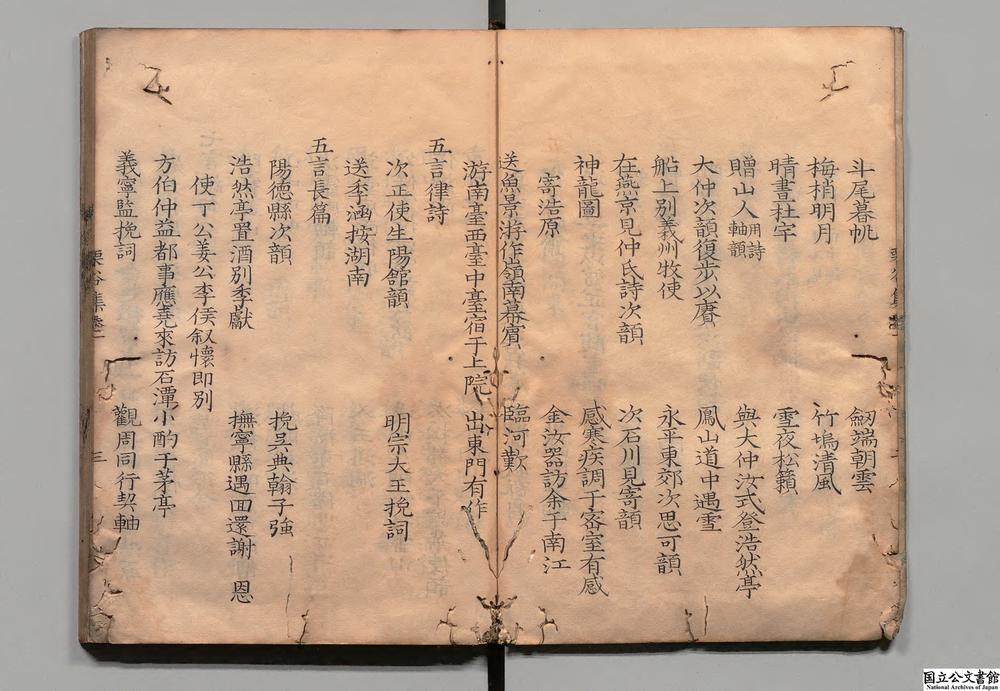 斗尾暮帆　劒端朝雲
梅梢明月　竹塢清風
晴晝杜宇　雪夜松籟
贈山人用詩軸韻　與大仲汝式登浩然亭
大仲次韻復步以賡　鳳山道中遇雪
船上別義州牧使　永平東郊次思可韻
在燕京見仲氏詩次韻　次石川見寄韻
神龍圖　感寒疾調于密室有感
寄浩原　金汝器訪余于南江
送魚景游作嶺南幕賓　臨河歎
游南臺西臺中臺宿于上院　出東門有作
五言律詩
次正使生陽館韻　明宗大王挽詞
送李涵按湖南
五言長篇
陽德縣次韻　挽吳典翰子強
浩然亭置酒別季獻　撫寧縣遇回還謝　恩
使丁公姜公李侯叙懷即別
方伯仲益都事應堯來訪石潭小酌于茅亭
義寧監挽詞　觀周同行契軸
栗谷集卷一　三
国立公文書館
National Archives of Japan